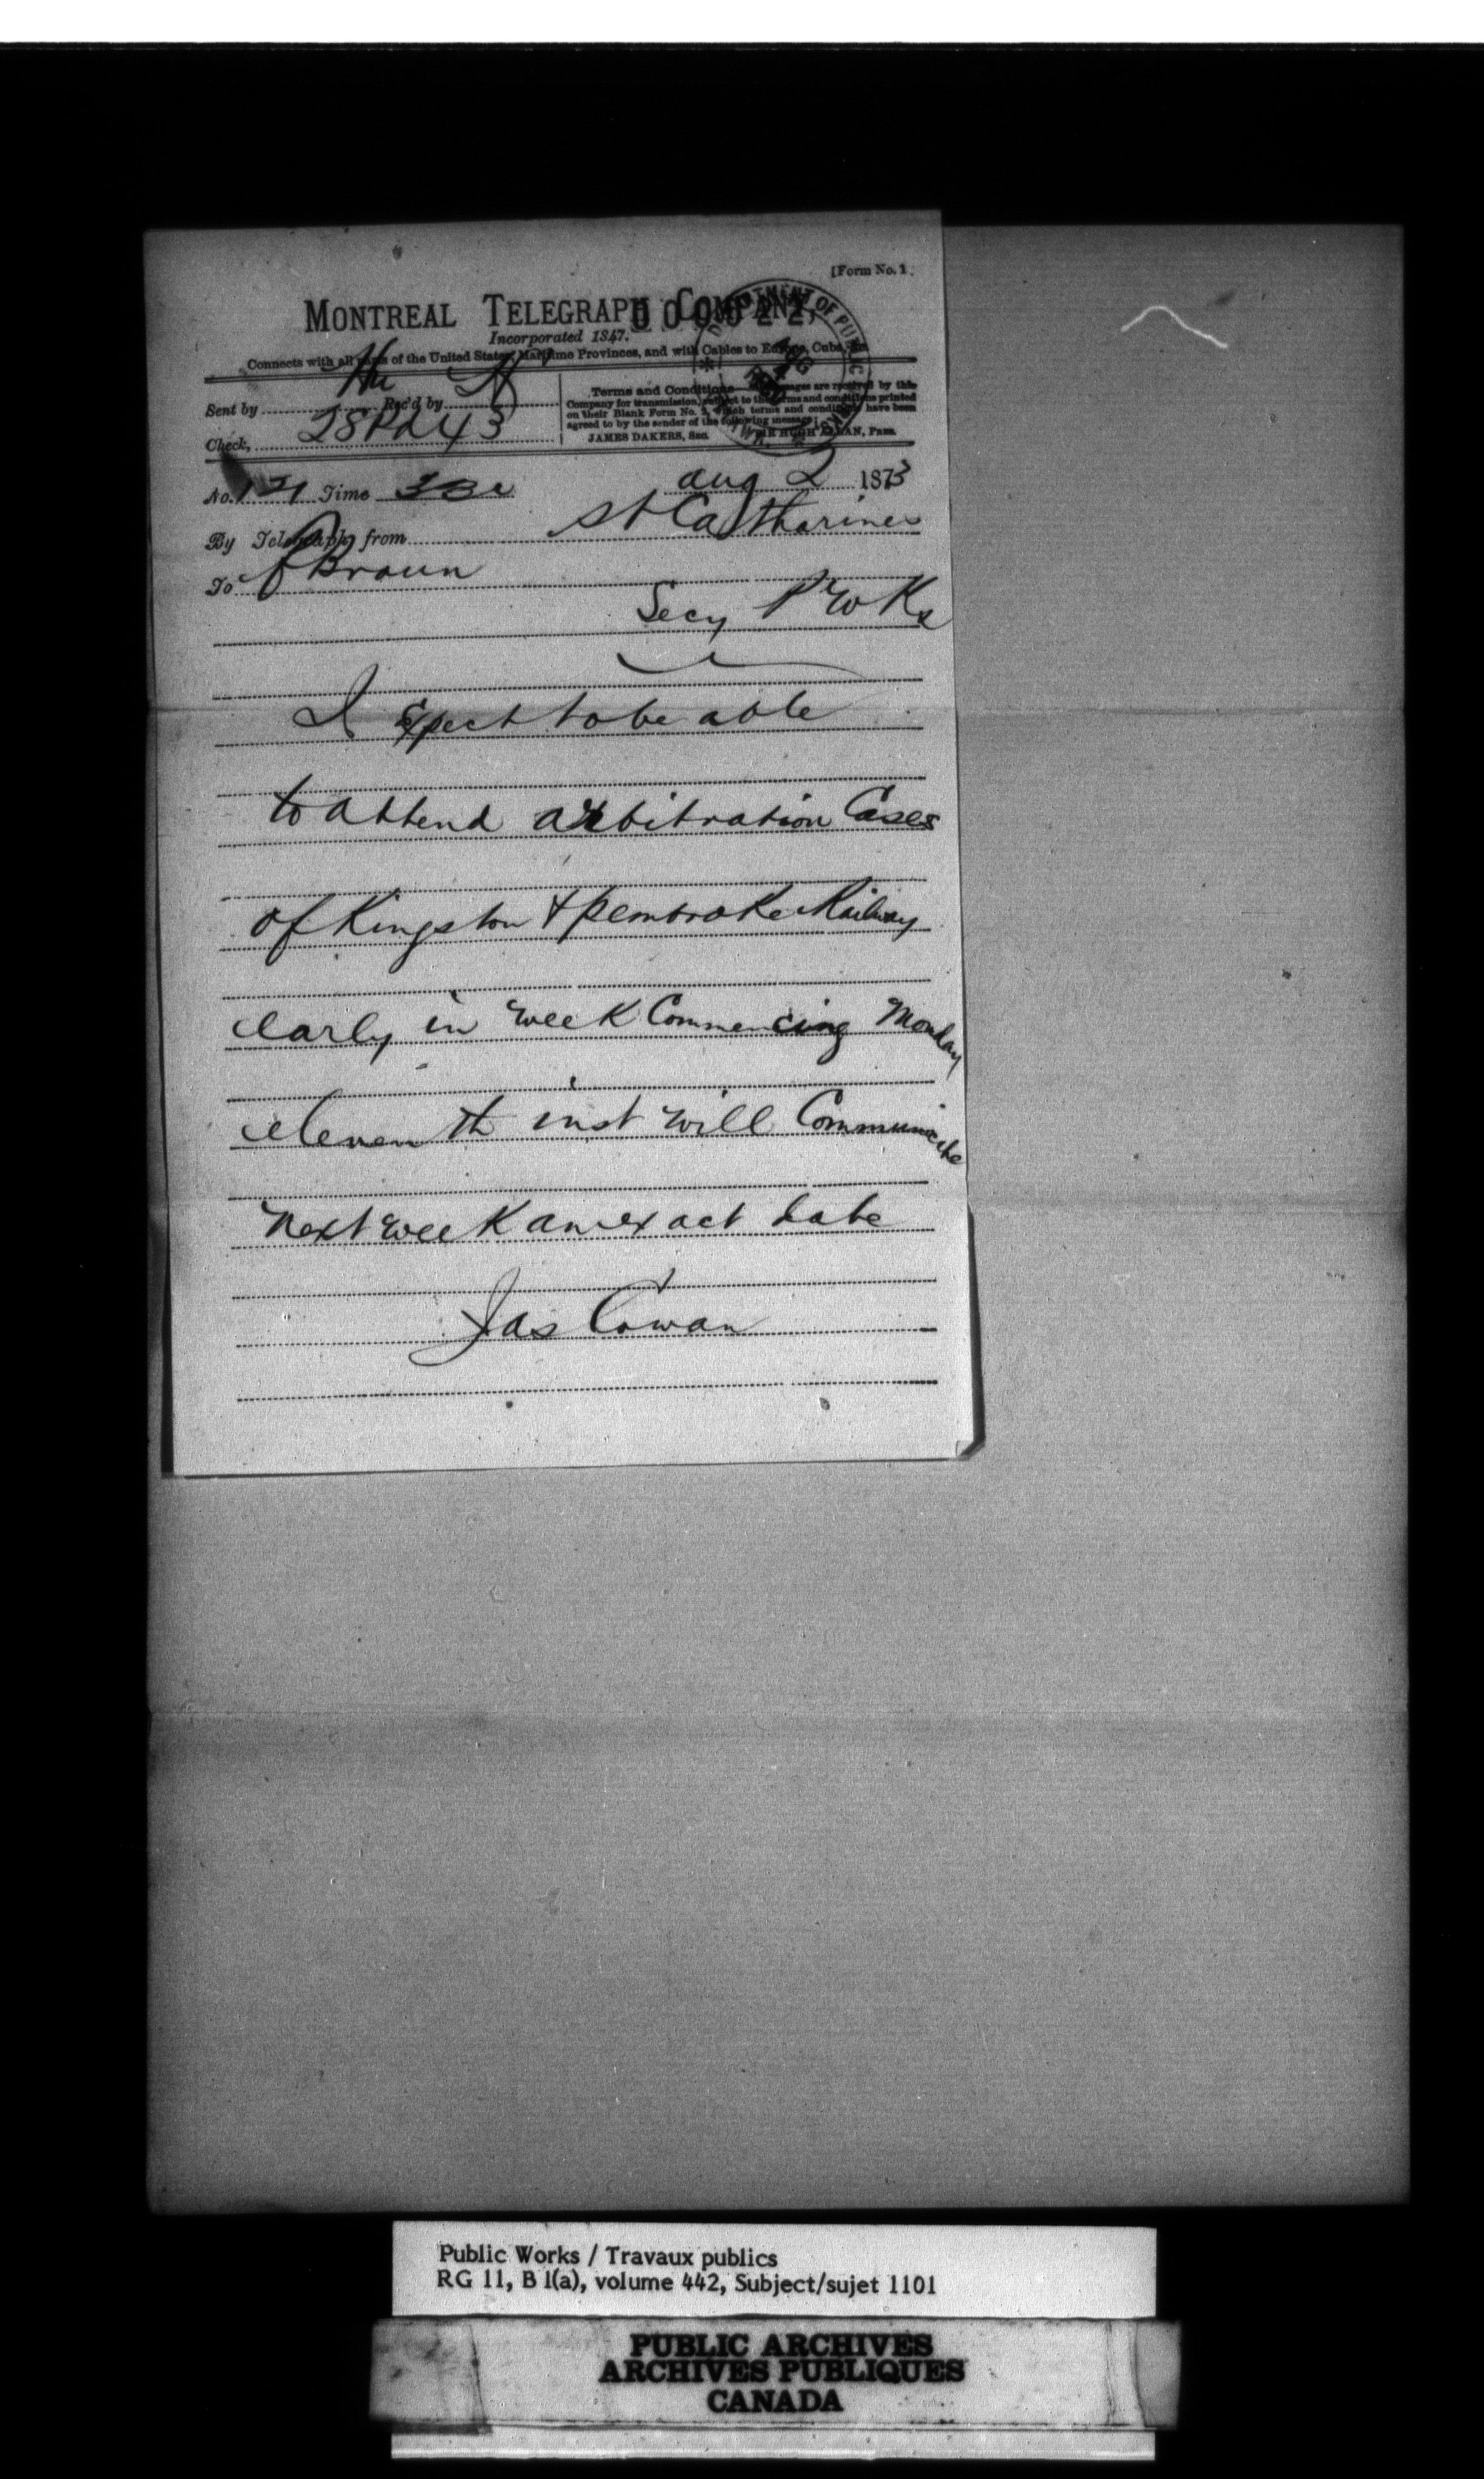 [Form No. 1.
MONTREAL TELEGRAPH COMPANY,
000022
Incorporated 1847.
Connects with all parts of the United States, Maritime Provinces, and with Cables to Europe, Cuba, &c.
DEPARTMENT OF PUBLIC
AUG
4
Sent by Hu Rec'd by
Check, 28 Pd 43
Terms and Conditions—Messages are received by this
Company for transmission, subject to the terms and conditions printed
on their Blank Form No. 2, which terms and conditions have been
agreed to by the sender of the following message.
JAMES DAKERS, Sec. SIR HUGH ALLAN, Pres.
No. 121 Time
Aug 2 1873
By Telegraph from St Catharines
To F Braun
Secy P Wks
I expect to be able
to attend arbitration Cases
of Kingston & Pembroke Railway
early in week Commencing Monday
eleventh inst will Communicate
next week an exact date
Jas Cowan
Public Works / Travaux publics
RG 11, B 1(a), volume 442, Subject/sujet 1101
PUBLIC ARCHIVES
ARCHIVES PUBLIQUES
CANADA